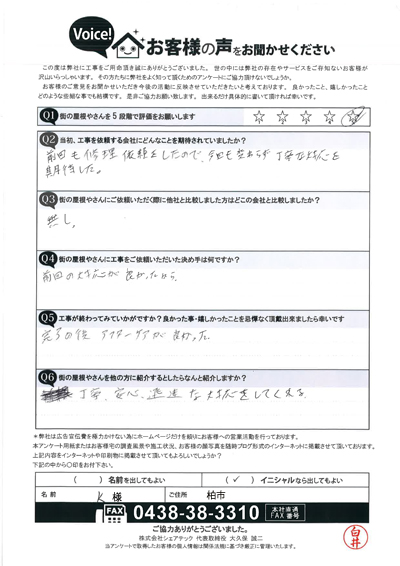 Voice! お客様の声をお聞かせください
この度は弊社に工事をご用命頂き誠にありがとうございました。世の中には弊社の存在やサービスをご存知ないお客様が
沢山いらっしゃいます。その方たちに弊社をよく知って頂くためのアンケートにご協力頂けないでしょうか。
お客様のご意見をお聞かせいただき今後の活動に反映させていただきたいと考えております。良かったこと、嬉しかったこと
どのような些細な事でも結構です。是非ご協力お願い致します。出来るだけ具体的に書いて頂ければ幸いです。
Q1 街の屋根やさんを5段階で評価をお願いします ☆ ☆ ☆ ☆ ☆
Q2 当初、工事を依頼する会社にどんなことを期待されていましたか?
前回も修理依頼をしたので、今回も変わらず丁寧な対応を
期待した。
Q3 街の屋根やさんにご依頼いただく際に他社と比較しました方はどこの会社と比較しましたか?
無し。
Q4 街の屋根やさんに工事をご依頼いただいた決め手は何ですか?
前回の対応が良かったから。
Q5 工事が終わってみていかがですか?良かった事・嬉しかったことを忌憚なく頂戴出来ましたら幸いです
完了の後 アフターケアが良かった。
Q6 街の屋根やさんを他の方に紹介するとしたらなんと紹介しますか?
丁寧、安心、迅速な対応をしてくれる
*弊社は広告宣伝費を極力かけない為にホームページだけを頼りにお客様への営業活動を行っております。
本アンケート用紙またはお客様宅の調査風景や施工状況、お客様の顔写真を随時ブログ形式のインターネットに掲載させて頂いております。
上記内容をインターネットや印刷物に掲載させて頂いてもよろしいでしょうか?
下記の中から○印をお付下さい。
( ) 名前を出してもよい (✓) イニシャルなら出してもよい
名前 K 様 ご住所 柏市
FAX 0438-38-3310 本社直通 FAX番号
ご協力ありがとうございました。
株式会社シェアテック 代表取締役 大久保 誠二
当アンケートで取得したお客様の個人情報は関係法規に基づき厳正に管理いたします。
白井